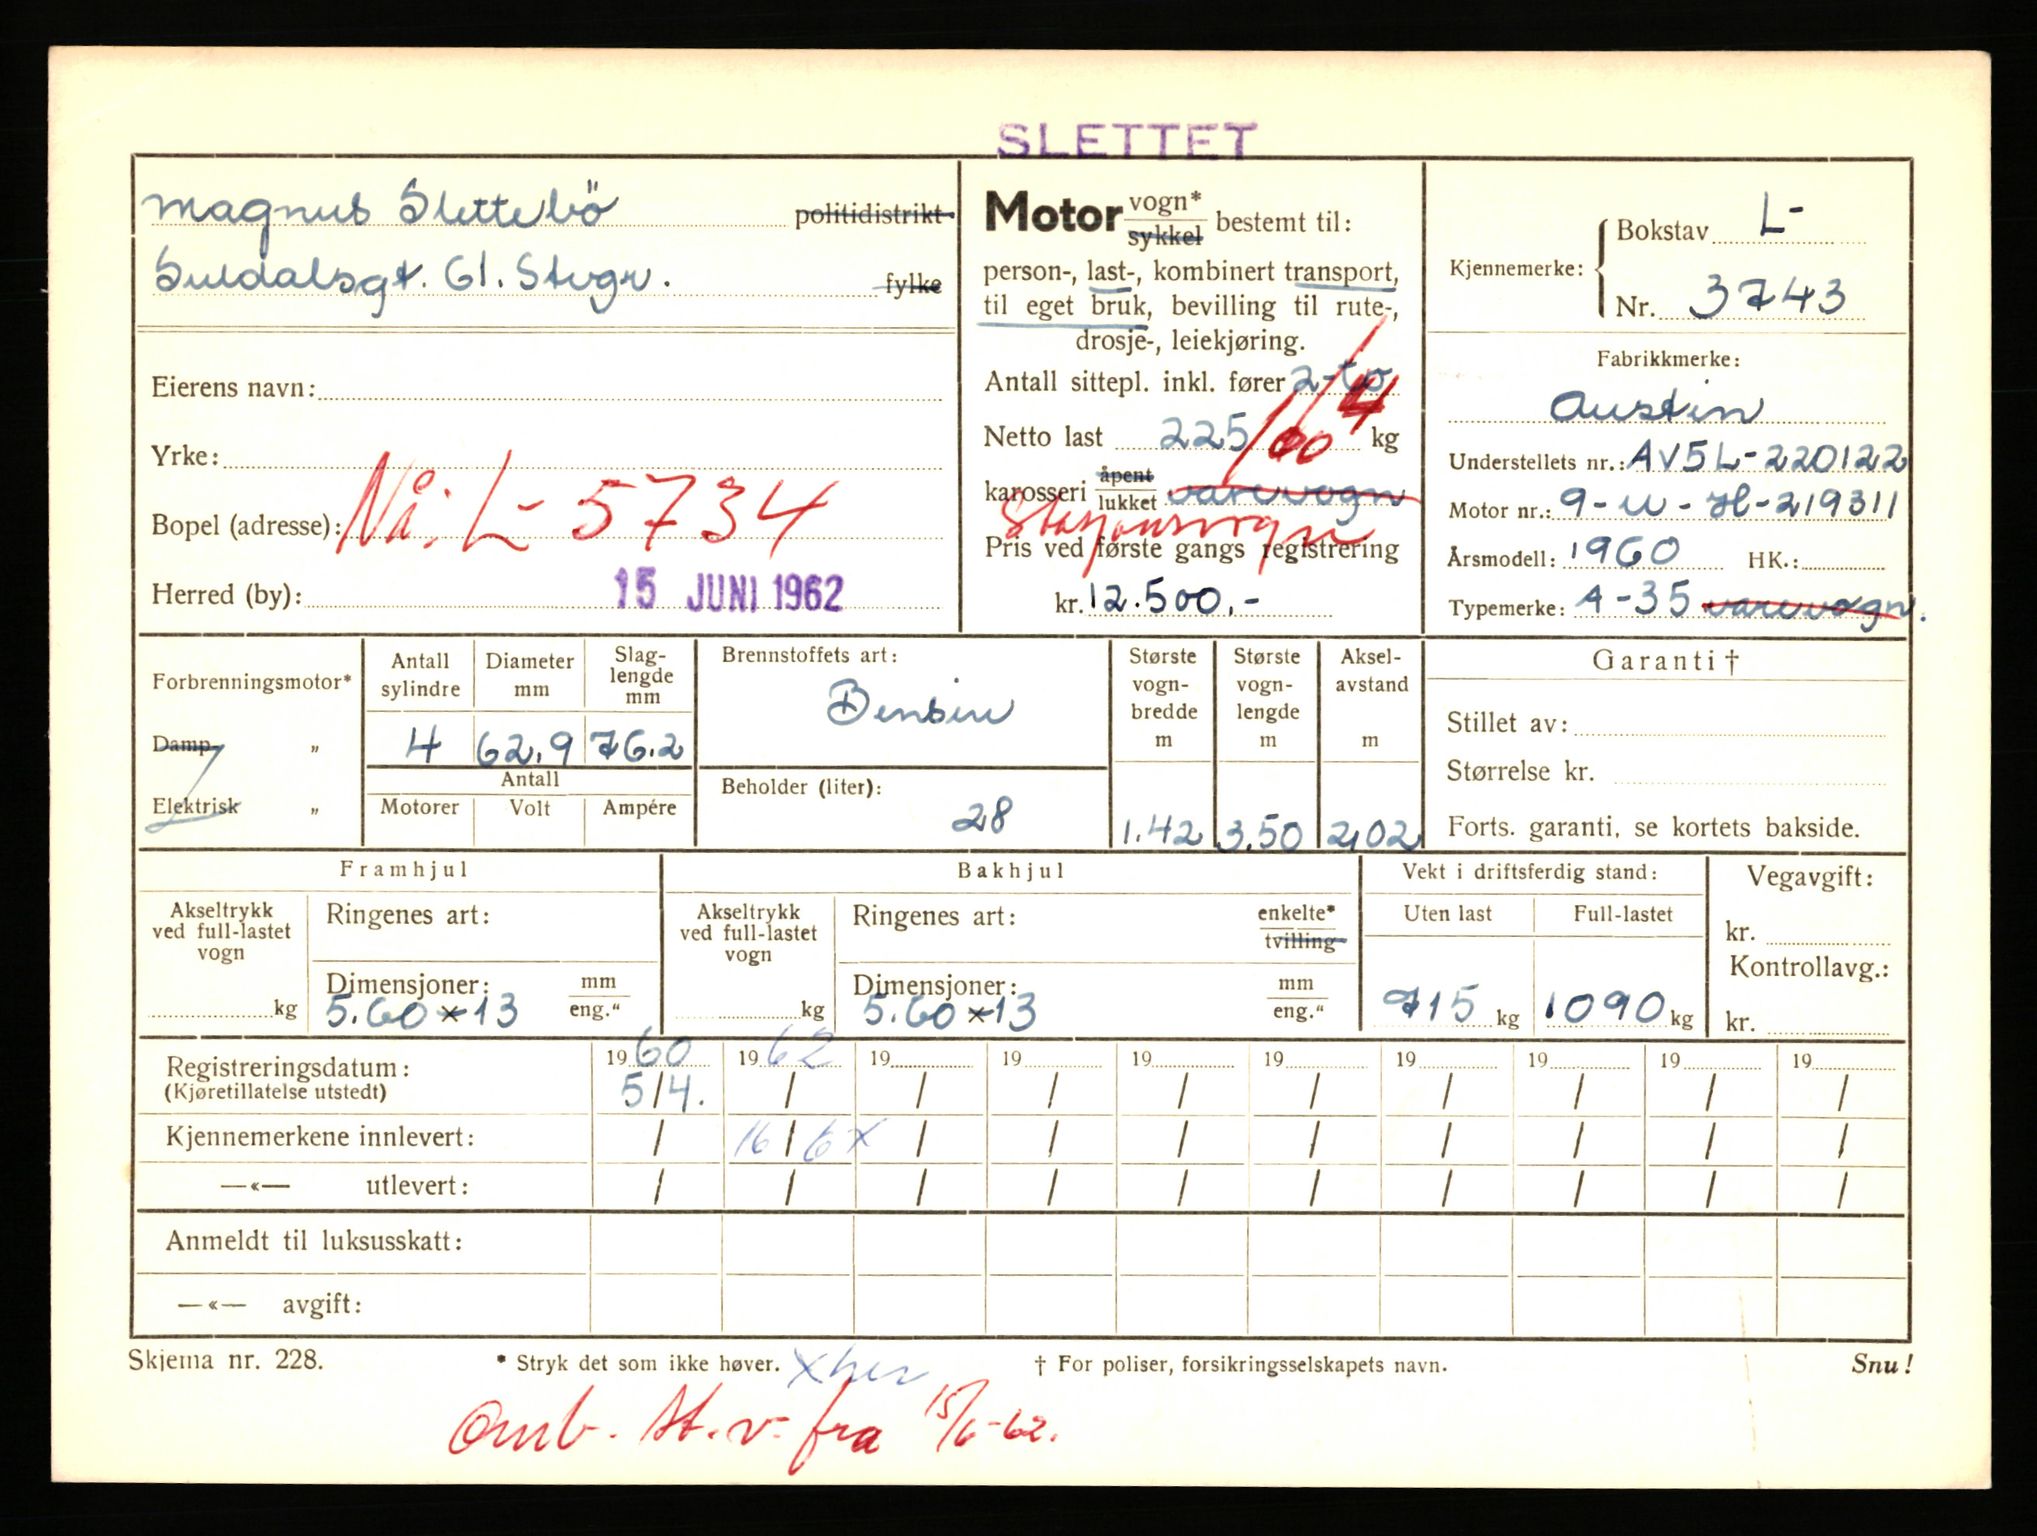 SLETTET
Magnus Slettebö politidistrikt
Suldalsgt. 61. Stvgr. fylke
Eierens navn:
Yrke:
Bopel (adresse): Nå: L- 5734
Herred (by): 15 JUNI 1962
Motor vogn* sykkel bestemt til:
person-, last-, kombinert transport,
til eget bruk, bevilling til rute-,
drosje-, leiekjøring.
Antall sittepl. inkl. fører 2-to 4
Netto last 225 100 kg
karosseri åpent lukket varevogn
Stasjonsvogn
Pris ved første gangs registrering
kr. 12.500,-
Kjennemerke: Bokstav L-
Nr. 3743
Fabrikkmerke:
Austin
Understellets nr.: AV5L-220122
Motor nr.: 9-U-H-219311
Årsmodell: 1960 HK.:
Typemerke: A-35 varevogn.
Forbrenningsmotor*
Damp „
Elektrisk „
Antall sylindre Diameter mm Slag-lengde mm
4 62.9 76.2
Antall
Motorer Volt Ampére
Brennstoffets art:
Bensin
Beholder (liter):
28
Største vogn-bredde m Største vogn-lengde m Aksel-avstand m
1.42 3.50 2,02
Garanti †
Stillet av:
Størrelse kr.
Forts. garanti, se kortets bakside.
Framhjul
Akseltrykk ved full-lastet vogn
kg
Ringenes art:
Dimensjoner: mm eng."
5.60 x 13
Bakhjul
Akseltrykk ved full-lastet vogn
kg
Ringenes art: enkelte* tvilling
Dimensjoner: mm eng."
5.60 x 13
Vekt i driftsferdig stand:
Uten last Full-lastet
715 kg 1090 kg
Vegavgift:
kr.
Kontrollavg.:
kr.
Registreringsdatum: 1960 1962 19 19 19 19 19 19 19 19
(Kjøretillatelse utstedt) 5/4. / / / / / / / / /
Kjennemerkene innlevert: / 16/6 x / / / / / / / /
—«— utlevert: / / / / / / / / / /
Anmeldt til luksusskatt:
—«— avgift:
Skjema nr. 228. * Stryk det som ikke høver. x her † For poliser, forsikringsselskapets navn. Snu!
Omb. st.v. fra 15/6-62.